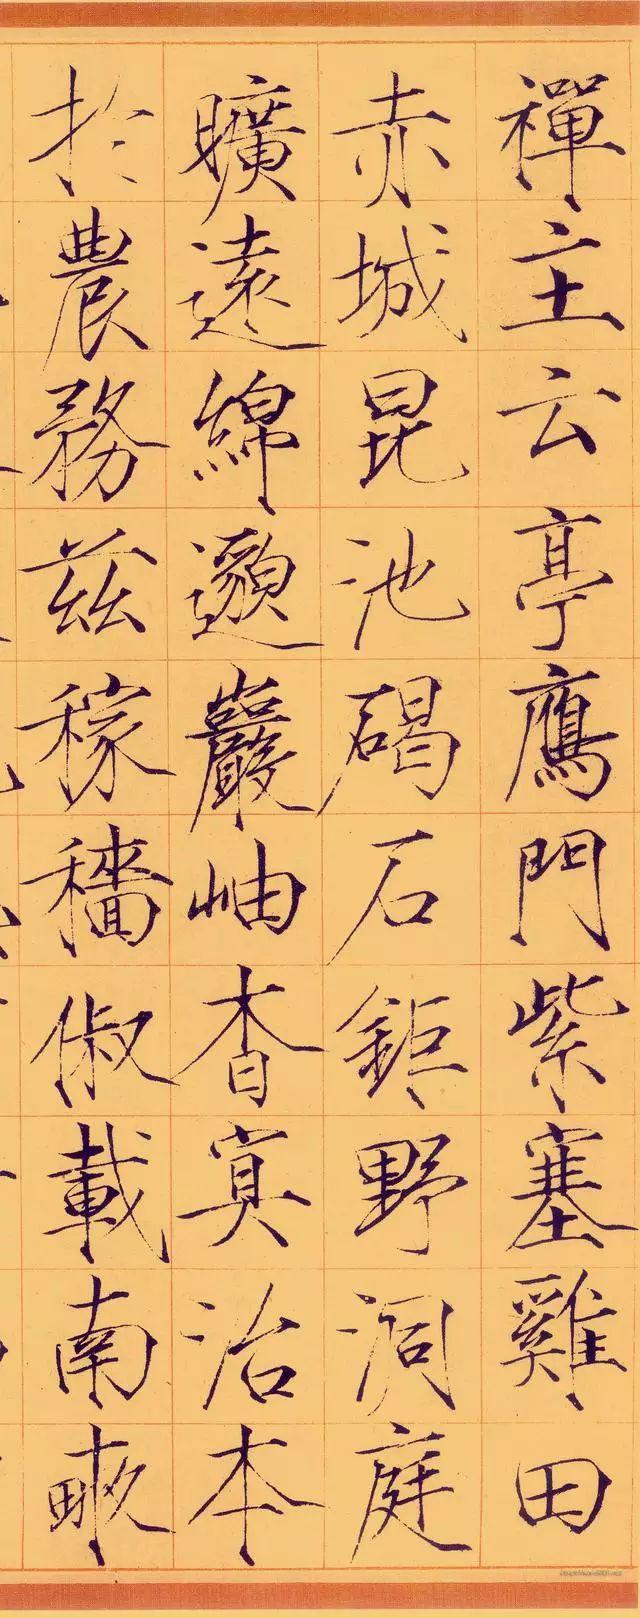 禪主云亭鴈門紫塞雞田
赤城昆池碣石鉅野洞庭
曠遠綿邈巖岫杳冥治本
於農務茲稼穡俶載南畝